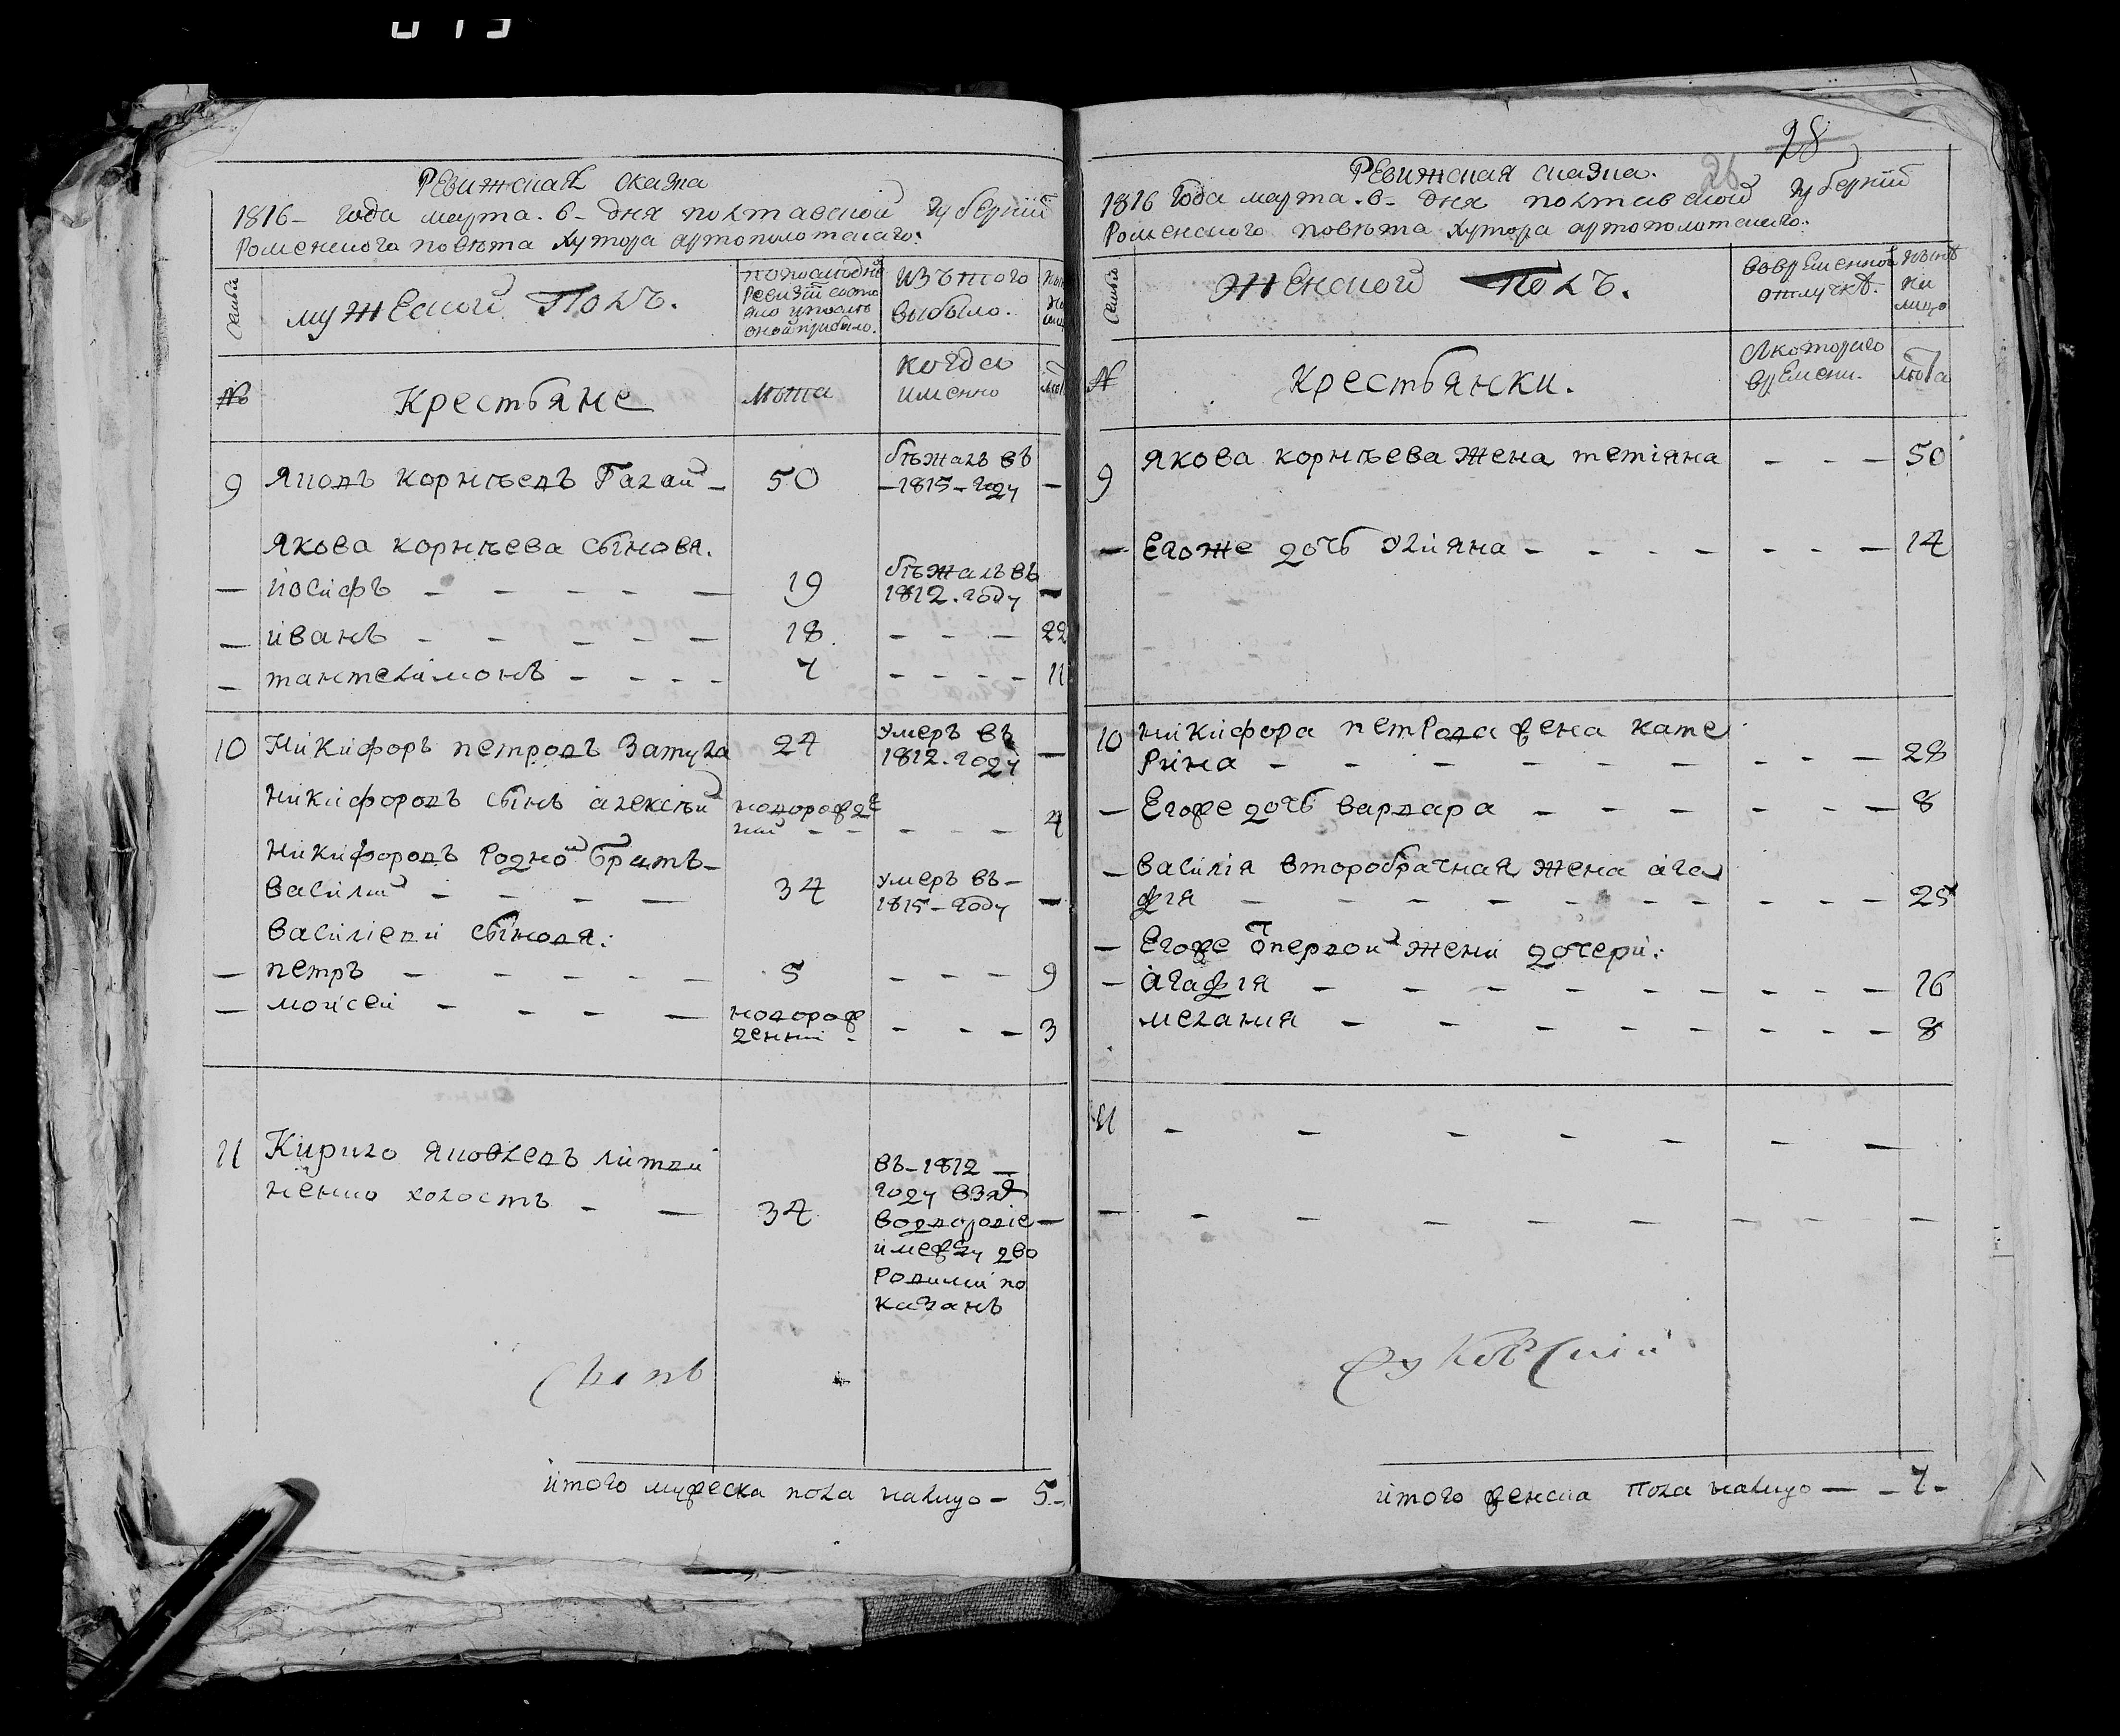 28
26
Ревижская сказка
1816 - года марта . 6 - дня полтавской губернїи
Роменского повѣта хутора артополотского:
Семьи
мужеской Полъ.
по последнѣй ревизїи состояло и после оной прибыло.
Изъ того выбыло.
№
Крестьяне
Лѣта
когда именно
9 Яковъ корнѣевъ Галай - 50 бѣжалъ въ - 1815 - году -
Якова корнѣева сынова.
- йосифъ - - - - - 19 бѣжалъ въ 1812. году -
- иванъ - - - - - 18. - - - 22
- пантелимонъ - - - - 7 - - - - 11
10 Никифоръ петровъ Затула 24 умеръ въ 1812. году -
Никифоровъ сынъ алексѣй новорожденний - - - - - 4
Никифоровъ родной братъ -
василий - - - - 34 умеръ въ - 1815 - году -
василиеви сынова:
- петръ - - - - - 5 - - - 9
- мойсей - - - - новорожденний - - - - 3
11 Кирило яковлевъ литвиненко холостъ - - 34 въ - 1812 - году взят
показанъ
итого мужеска пола налицо - 5 -
Ревижская сказка.
1816 года марта . 6 - дня полтавской губернїй
Роменского повѣта хутора артополотского:
Семьи
Женской Полъ.
во временной отлучкѣ.
нынѣ на лицо
№
Крестьянки.
С которого времени.
лѣта
9 якова корнѣева жена тетіяна - - - 50
- Егоже дочь улияна - - - - - - - - 14
10 никифора петрова жена катерина - - - - - - - - - 28
- Егоже дочь варвара - - - - - - - 8
- василія второбрачная жена агафія - - - - - - - - - - 25
- Егоже от первой жени дочери:
- агафія - - - - - - - - - - 16
мелания - - - - - - - - - 8
11 - - - - - - -
- - - - - - - - - -
итого женска пола налицо - - 7 -